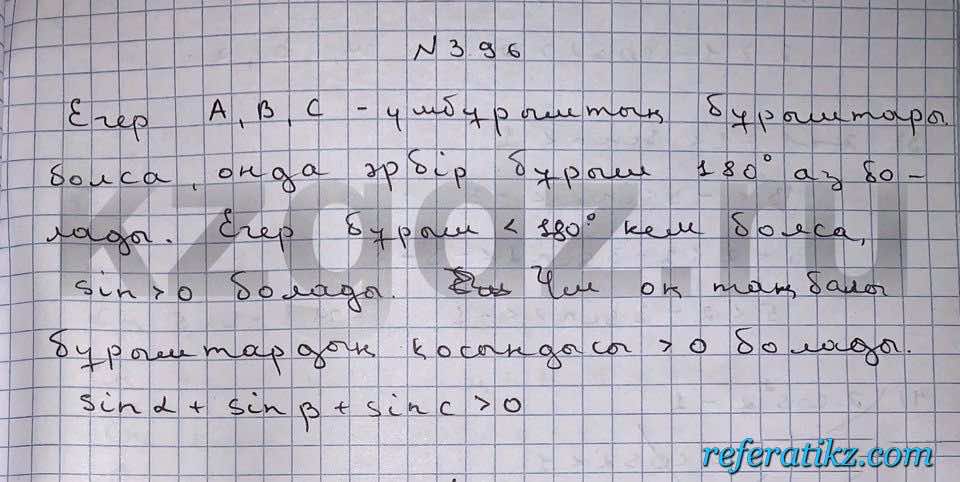 №396
Егер А, В, С - үшбұрыштың бұрыштары
болса, онда әрбір бұрыш 180° аз бо-
лады. Егер бұрыш < 180° кем болса,
sin > 0 болады. Үш оң таңбалы
бұрыштардың қосындысы > 0 болады.
sin α + sin β + sin c > 0
kzgdz.ru
referatikz.com